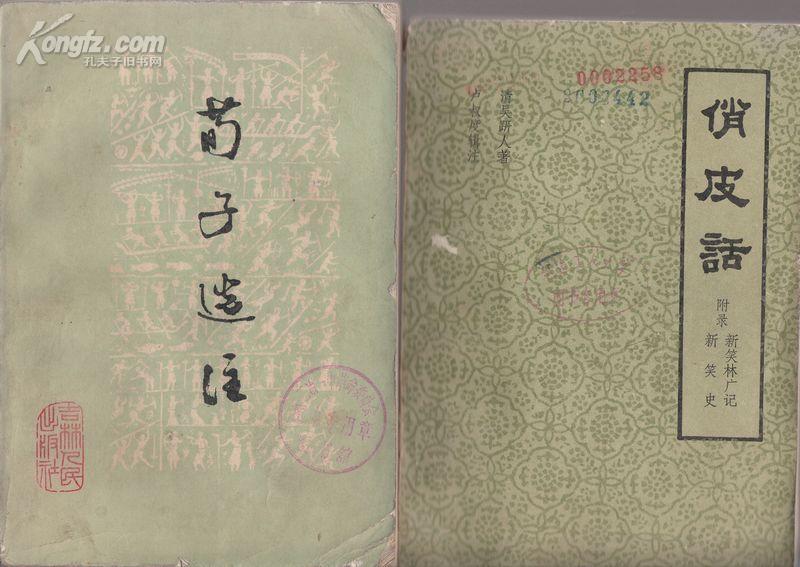 Kongfz.com
孔夫子旧书网
荀子选注
吉林人民
出版社
0002258
俏皮話
附录
新笑林广记
新笑史
清吴趼人著
卢叔度辑注